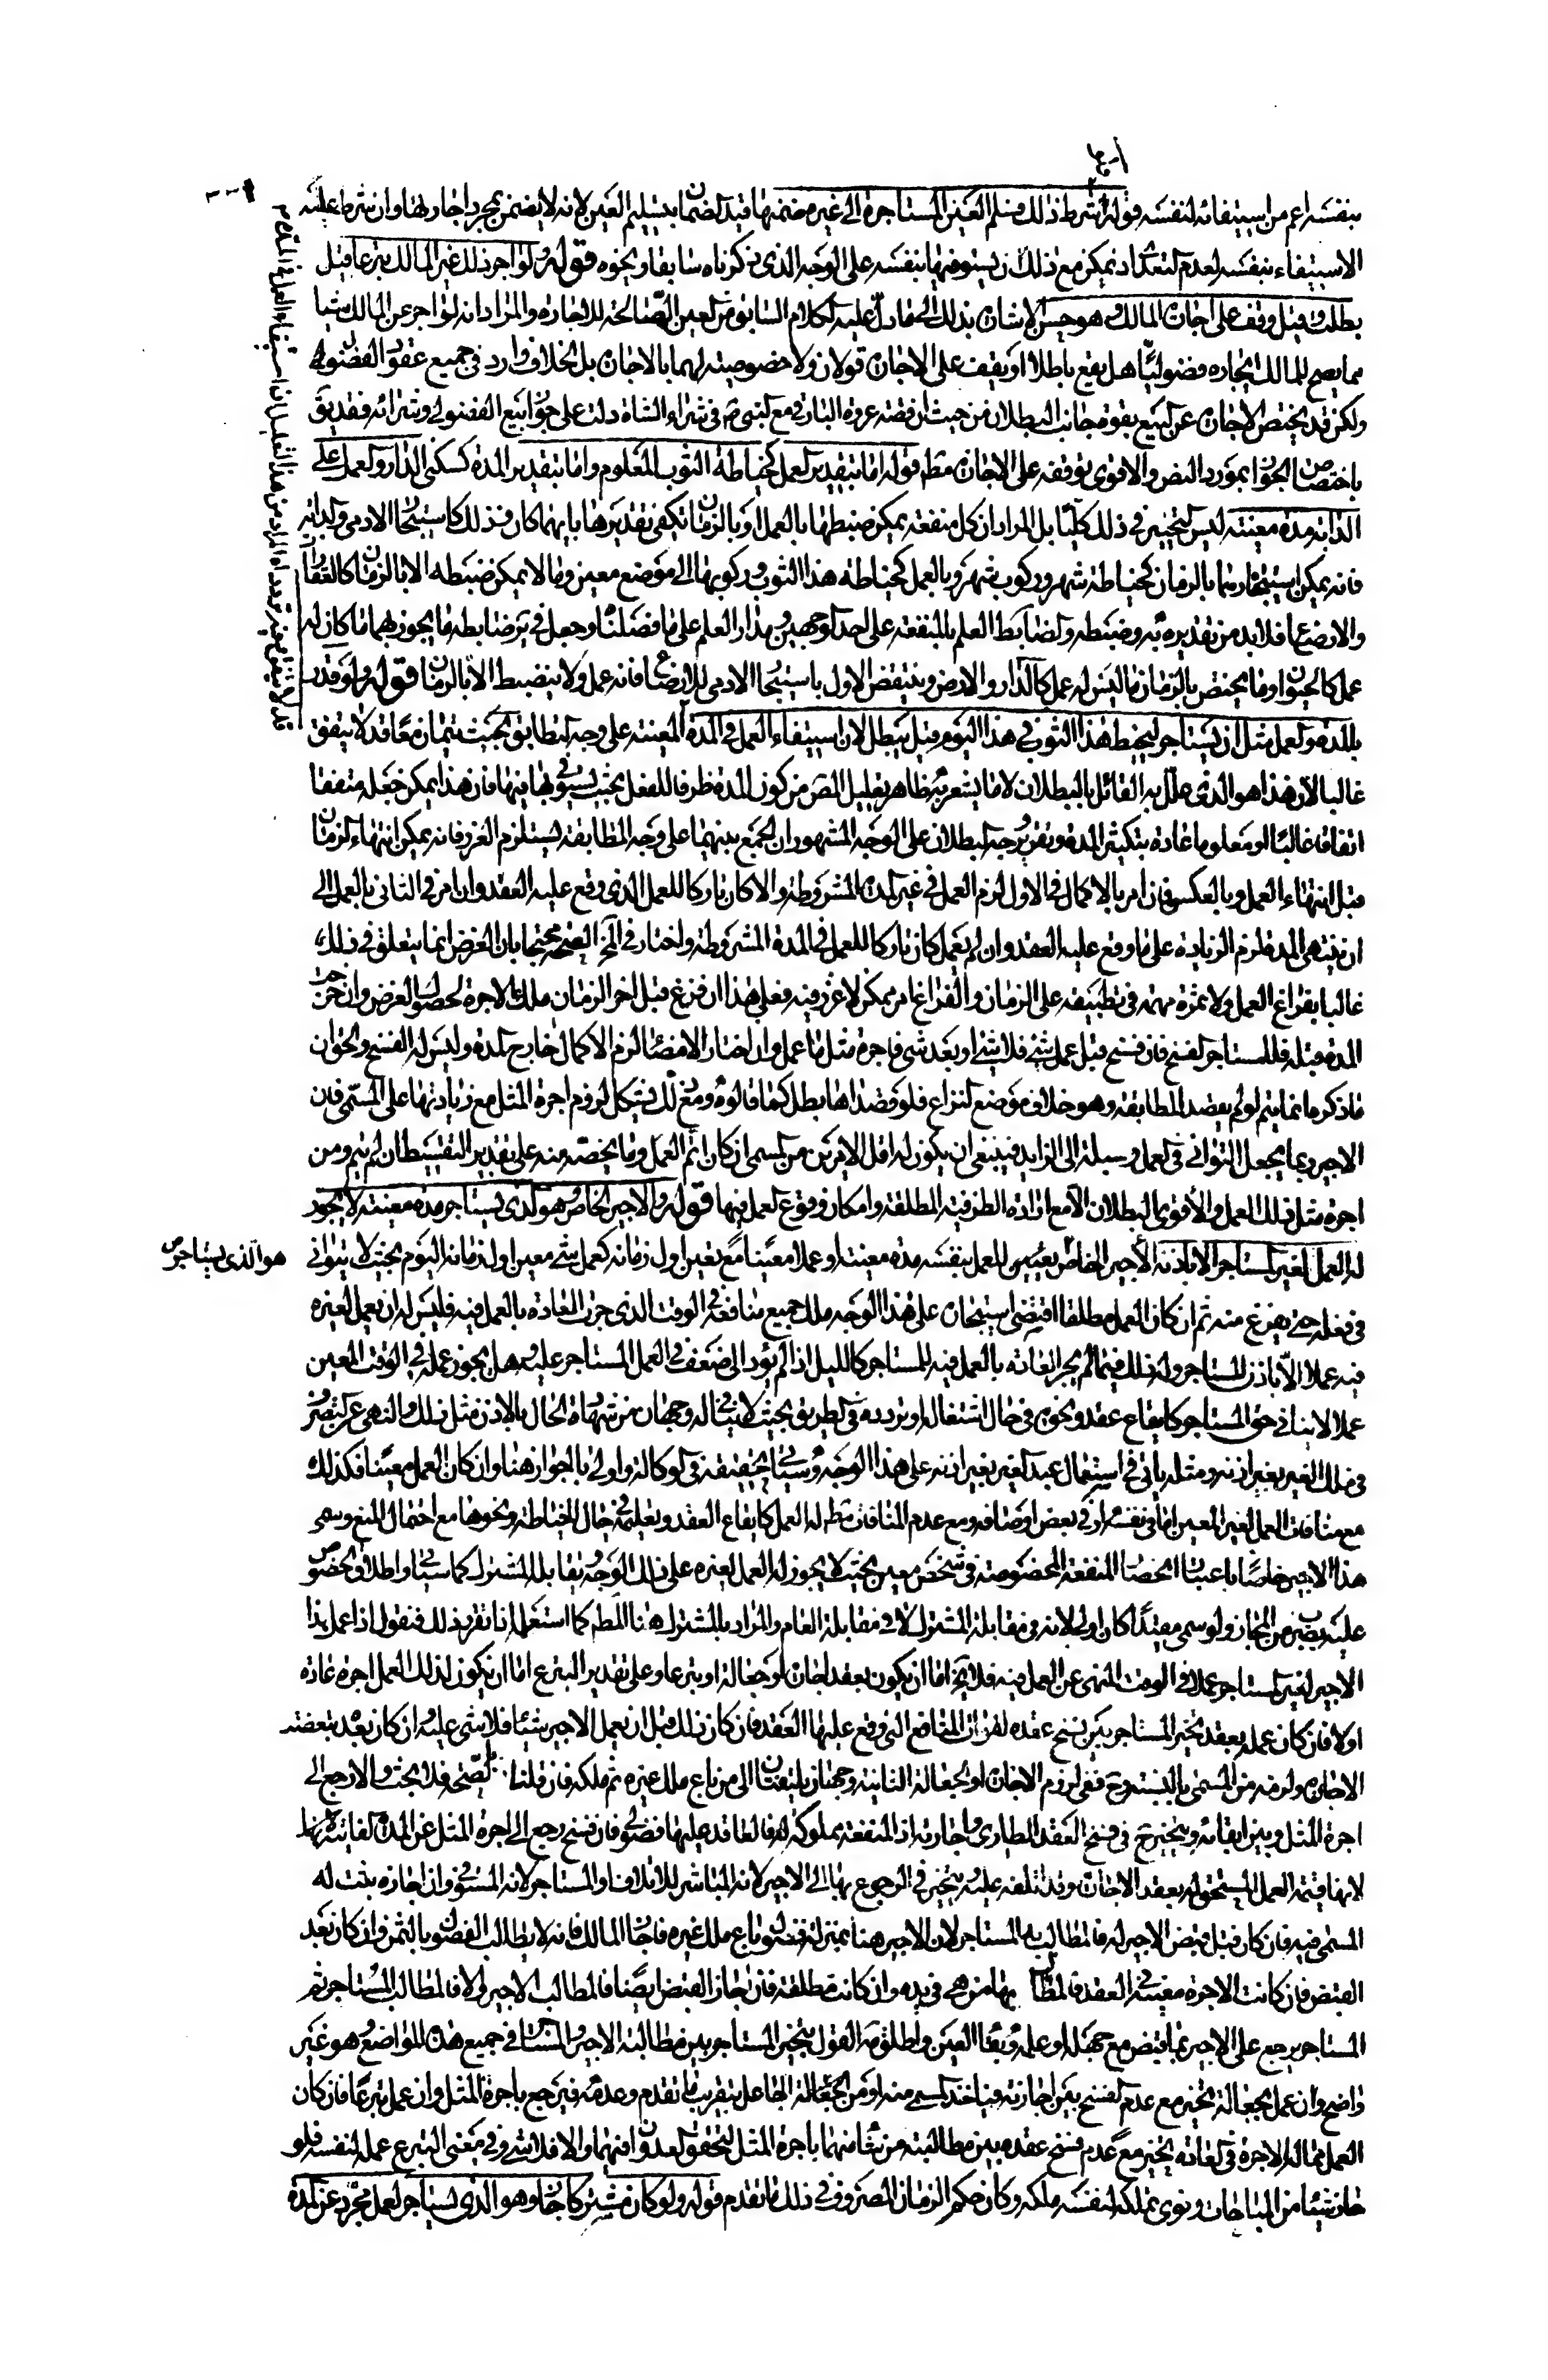 بنفسه اعم من استيفائه لنفسه قوله ولو شرط ذلك فسلم العين المستاجرة الى غيره ضمنها قيد الضمان بتسليم العين لانه لا يضمن بمجرد اجارتها وان شرط عليه
الاستيفاء بنفسه لعدم التعدي اذ يمكن مع ذلك ان يستوفيها بنفسه على الوجه الذي ذكرناه سابقا ونحوه قوله ولو اجر ذلك غير المالك تبرعا قيل
بطلت وقيل وقف على اجازة المالك وهو حسن الاشارة بذلك الى ما دل عليه الكلام السابق من العين الصالحة للاجارة والمراد انه لو اجر عن المالك شيئا
مما يصح للمالك ايجاره فضوليا هل يقع باطلا او يقف على الاجازة قولان ولا خصوصية لهما بالاجازة بل الخلاف وارد في جميع عقود الفضولي
ولكن قد يختص الاجارة عن البيع بقوة جانب البطلان من حيث ان قصة عروة البارقي مع النبي ص في شراء الشاة دلت على جواز بيع الفضولي وشرائه فقد يق
باختصاص الجواز بمورد النص والاقوى توقفه على الاجازة مطم قوله اما بتقدير العمل كخياطة الثوب المعلوم واما بتقدير المدة كسكنى الدار والعمل على
الدابة مدة معينة ليس التخيير في ذلك كليا بل المراد ان كل منفعة يمكن ضبطها بالعمل او بالزمان يكفي تقديرها بايهما كان وذلك كاستيجار الادمي والدابة
فانه يمكن استيجارهما بالزمان كخياطة شهر وركوب شهر وبالعمل كخياطة هذا الثوب وركوبها الى موضع معين وما لا يمكن ضبطه الا بالزمان كالعقار
والارضاع فلا بد من تقديره به وضبطه والضابط العلم بالمنفعة على احد الوجهين ومدار العلم على ما فصلناه وجعل في ير ضابطه ما يجوز بهما ما كان له
عمل كالحيوان وما يختص بالزمان ما ليس له عمل كالدار والارض وينتقض الاول باستيجار الادمي للارضاع فانه عمل ولا ينضبط الا بالزمان قوله ولو قدر
بالمدة والعمل مثل ان يستاجره ليخيط هذا الثوب في هذا اليوم قيل يبطل لان استيفاء العمل في المدة المعينة على وجه التطابق بحيث يتمان معا قد لا يتفق
غالبا الان هذا هو الذي علل به القائل بالبطلان لا ما يشعر به ظاهر تعليل المص من كون المدة ظرفا للفعل بحيث يستوفيها فيها فان هذا يمكن جعله متفقا
اتفاقا غالبا او معلوما عادة بتكثير المدة وتقرير وجه البطلان على الوجه المشهور ان الجمع بينهما على وجه المطابقة يستلزم الغرر فانه يمكن انتهاء الزمان
قبل انتهاء العمل وبالعكس فان امر بالاكمال في الاول لزم العمل في غير المدة المشروطة والا كان تاركا للعمل الذي وقع عليه العقد وان امر في الثاني بالعمل الى
ان ينتهي المدة لزم الزيادة على ما وقع عليه العقد وان لم يعمل كان تاركا للعمل في المدة المشروطة واختار في المخ الصحة محتجا بان الغرض انما يتعلق في ذلك
غالبا بفراغ العمل ولا ثمرة مهمة في تطبيقه على الزمان والفراغ امر ممكن لا غرر فيه فعلى هذا ان فرغ قبل اخر الزمان ملك الاجرة لحصول الغرض وان خرجت
المدة قبله فللمستاجر الفسخ فان فسخ قبل عمل شئ فلا شئ او بعد شئ فاجرة مثل ما عمل وان اختار الامضاء لزم الاكمال خارج المدة وليس له الفسخ والحق ان
ما ذكره انما يتم لو لم يقصد المطابقة وهو خلاف موضع النزاع فلو قصداها بطل كما قالوه ومع ذلك فيشكل لزوم اجرة المثل مع زيادتها على المسمى فان
الاجير ربما يجعل التواني في العمل وسيلة الى الزايد فينبغي ان يكون له اقل الامرين من المسمى ان كان اتم العمل وما يخصه منه على تقدير التقسيط ان لم يتم ومن
اجرة مثل ذلك العمل والاقوى البطلان الا مع ارادة الظرفية المطلقة وامكان وقوع العمل فيها قوله والاجير الخاص وهو الذي يستاجر مدة معينة لا يجوز
له العمل لغير المستاجر الا باذنه الاجير الخاص يعتبر للعمل بنفسه مدة معينة او عملا معينا مع تعيين اول زمانه كعمل شئ معين اول زمانه اليوم بحيث لا يتوانى
هو الذي يستاجر ص
في فعله حتى يفرغ منه ثم ان كان العمل مطلقا اقتضى استيجاره على هذا الوجه ملك جميع منافعه في الوقت الذي جرت العادة بالعمل فيه فليس له ان يعمل لغيره
فيه عملا الا باذن المستاجر وله ذلك فيما لم يجر العادة بالعمل فيه للمستاجر كالليل اذا لم يؤد الى ضعف في العمل المستاجر عليه وهل يجوز عمله في الوقت المعين
عملا لا ينافي حق المستاجر كايقاع عقد ونحوه في حال اشتغاله او تردده في الطريق بحيث لا ينافي له وجهان من شهادة الحال بالاذن مثل ذلك والنهي عن التصرف
في ملك الغير بغير اذنه ومثله ياتي في استعمال عبد الغير بغير اذنه على هذا الوجه وسياتي تحقيقه في الوكالة واولى بالجواز هنا وان كان العمل معينا فكذلك
مع منافاة العمل لغير المعين اما في نفسه او في بعض اوصافه ومع عدم المنافاة مطم له العمل كايقاع العقد وتعليمه في حال الخياطة ونحوها مع احتمال المنع وسمى
هذا الاجير خاصا باعتبار انحصار المنفعة المخصوصة في شخص معين بحيث لا يجوز له العمل لغيره على ذلك الوجه ويقابله المشترك كما سياتي واطلاق الخصوص
عليه بضرب من المجاز ولو سمى مقيدا كان اولى لانه في مقابلة المشترك لا في مقابلة العام والمراد بالمشترك هنا المطلق كما استعمله اذا تقرر ذلك فنقول اذا عمل هذا
الاجير لغير المستاجر عملا في الوقت المنهى عن العمل فيه فلا يخ اما ان يكون بعقد اجارة او جعالة او تبرعا وعلى تقدير التبرع اما ان يكون لذلك العمل اجرة عادة
اولا فان كان عمله بعقد تخير المستاجر بين فسخ عقده لفوات المنافع التي وقع عليها العقد فان كان ذلك قبل ان يعمل الاجير شيئا فلا شئ عليه وان كان بعد بعضه
الاجارة ولزمه من المسمى بالنسبة وح ففي لزوم الاجارة او الجعالة الثانية وجهان يلتفتان الى من باع ملك غيره ثم ملكه فان قلنا بالصحة فلا بحث والا رجع الى
اجرة المثل وبين ابقائه ويتخير ح في فسخ العقد الطاري واجازته اذ المنفعة مملوكة له فالعاقد عليها فضولي فان فسخ رجع الى اجرة المثل عن المدة الفايتة
لانها قيمة العمل المستحق له بعقد الاجارة وقد اتلف عليه ويتخير في الرجوع بها الى الاجير لانه المباشر للاتلاف او المستاجر لانه المستوفى وان اجازه ثبت له
المسمى فيه فان كان قبل قبض الاجير له فالمطالب به المستاجر لان الاجير هنا بمنزلة فضولي باع ملك غيره فاجاز المالك فانه لا يطالب الفضولي بالثمن وان كان بعد
القبض فان كانت الاجرة معينة في العقد فالمطالب بها من هي في يده وان كانت مطلقة فان اجاز القبض ايضا فالمطالب الاجير والا فالمطالب المستاجر ثم
المستاجر يرجع على الاجير بما قبض مع جهله او علمه وبقاء العين واطلق مه القول بتخير المستاجر بين مطالبة الاجير والمستاجر في جميع هذه المواضع وهو غير
واضح وان عمل بجعالة تخير مع عدم الفسخ بين اجازته فياخذ المسمى منه او من الجاعل بتقريب ما تقدم وعدمه فيرجع باجرة المثل وان عمل تبرعا فان كان
العمل مما له الاجرة في العادة تخير مع عدم فسخ عقده بين مطالبة من شاء منهما باجرة المثل لتحقق العدوان منهما والا فلا شئ وفي معنى التبرع عمله لنفسه فلو
حاز شيئا من المباحات ونوى تملكه لنفسه ملكه وكان حكم الزمان المصروف في ذلك ما تقدم قوله ولو كان مشتركا جاز وهو الذي يستاجر لعمل مجرد عن المدة